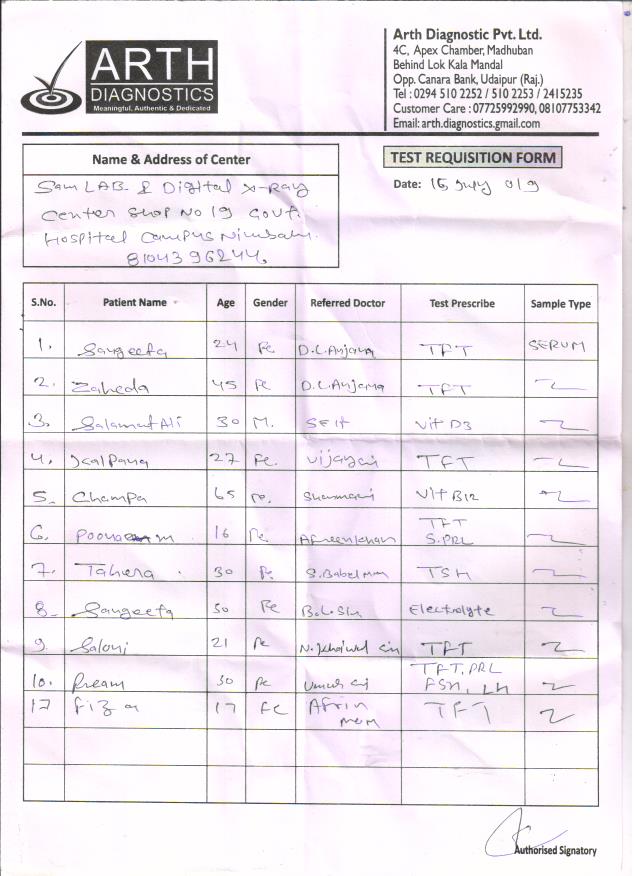 ARTH
DIAGNOSTICS
Meaningful, Authentic & Dedicated
Arth Diagnostic Pvt. Ltd.
4C, Apex Chamber, Madhuban
Behind Lok Kala Mandal
Opp. Canara Bank, Udaipur (Raj.)
Tel : 0294 510 2252 / 510 2253 / 2415235
Customer Care : 07725992990, 08107753342
Email: arth.diagnostics.gmail.com
Name & Address of Center
TEST REQUISITION FORM
Sam LAB & Digital X-Ray
Center Shop No 19 Govt.
Hospital Campus
8104396244
Date: 15 July 019
S.No. Patient Name Age Gender Referred Doctor Test Prescribe Sample Type
1. Sangeeta 24 Fe D.C.Anjana TFT SERUM
2. Zaheda 45 Fe D.C.Anjana TFT
3. Salamat Ali 30 M. SElf Vit D3
4. Kalpana 27 Fe. Vijay TFT
5. Champa 65 Fe. Vit B12
6. 16 Fe TFT
S.PRL
7. Tahera 30 Fe S.Babel mm TSH
8. Sangeeta 30 Fe Electrolyte
9. Saloni 21 Fe TFT
10. 30 Fe TFT, PRL
FSH, LH
17 Fiza 17 FE Afrin mem TFT
Authorised Signatory